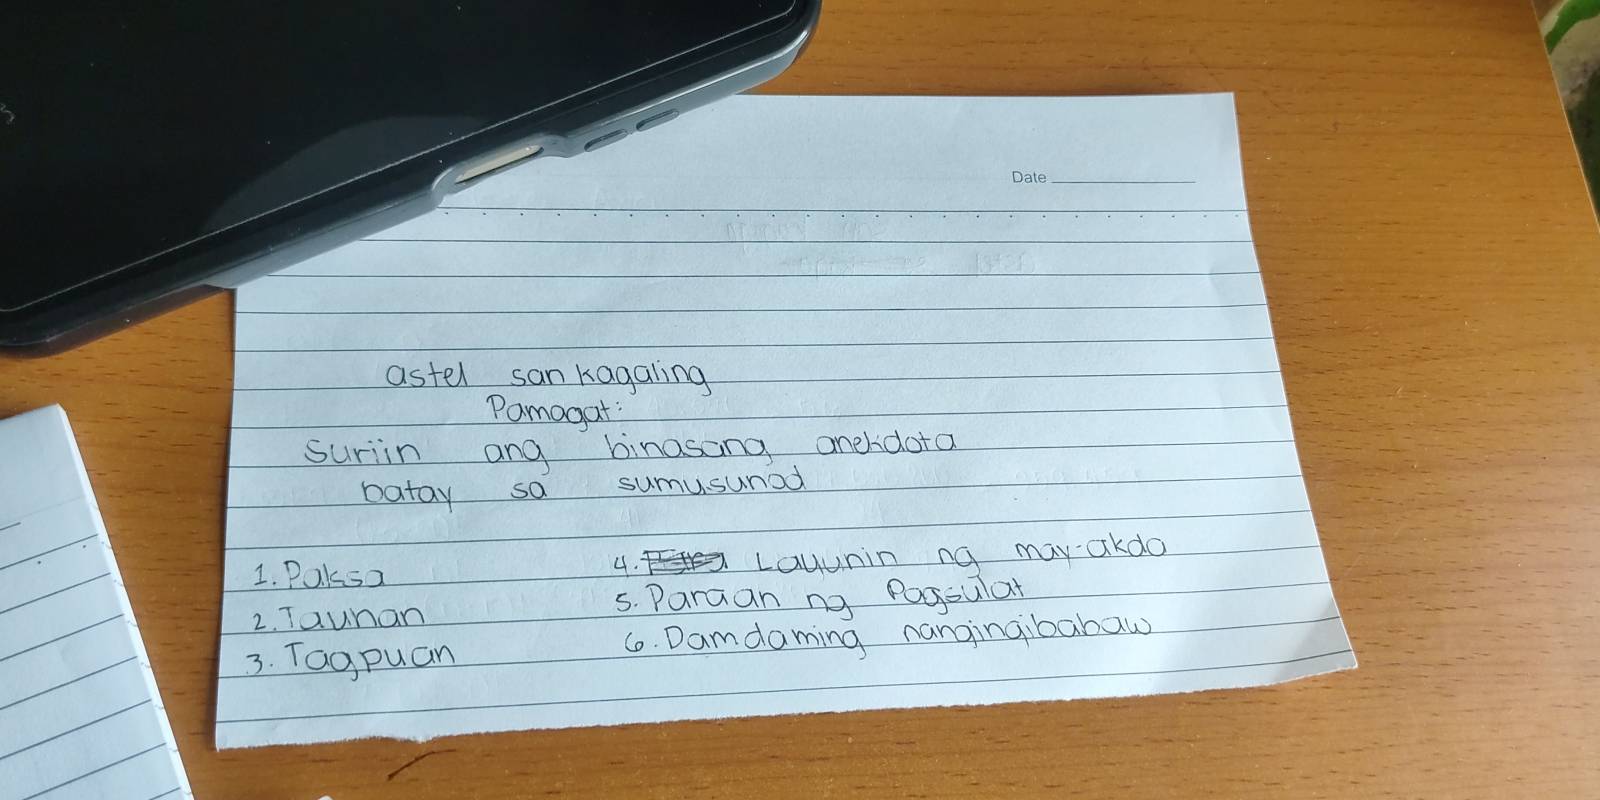 Date
astel san kagaling
Pamagat:
suriin ang binasang anekdota
batay sa sumusunod
1. Paksa
2. Tauhan
3. Tagpuan
4. Layunin ng may-akda
5. Paraan ng Pagsulat
6. Damdaming nangingibabaw